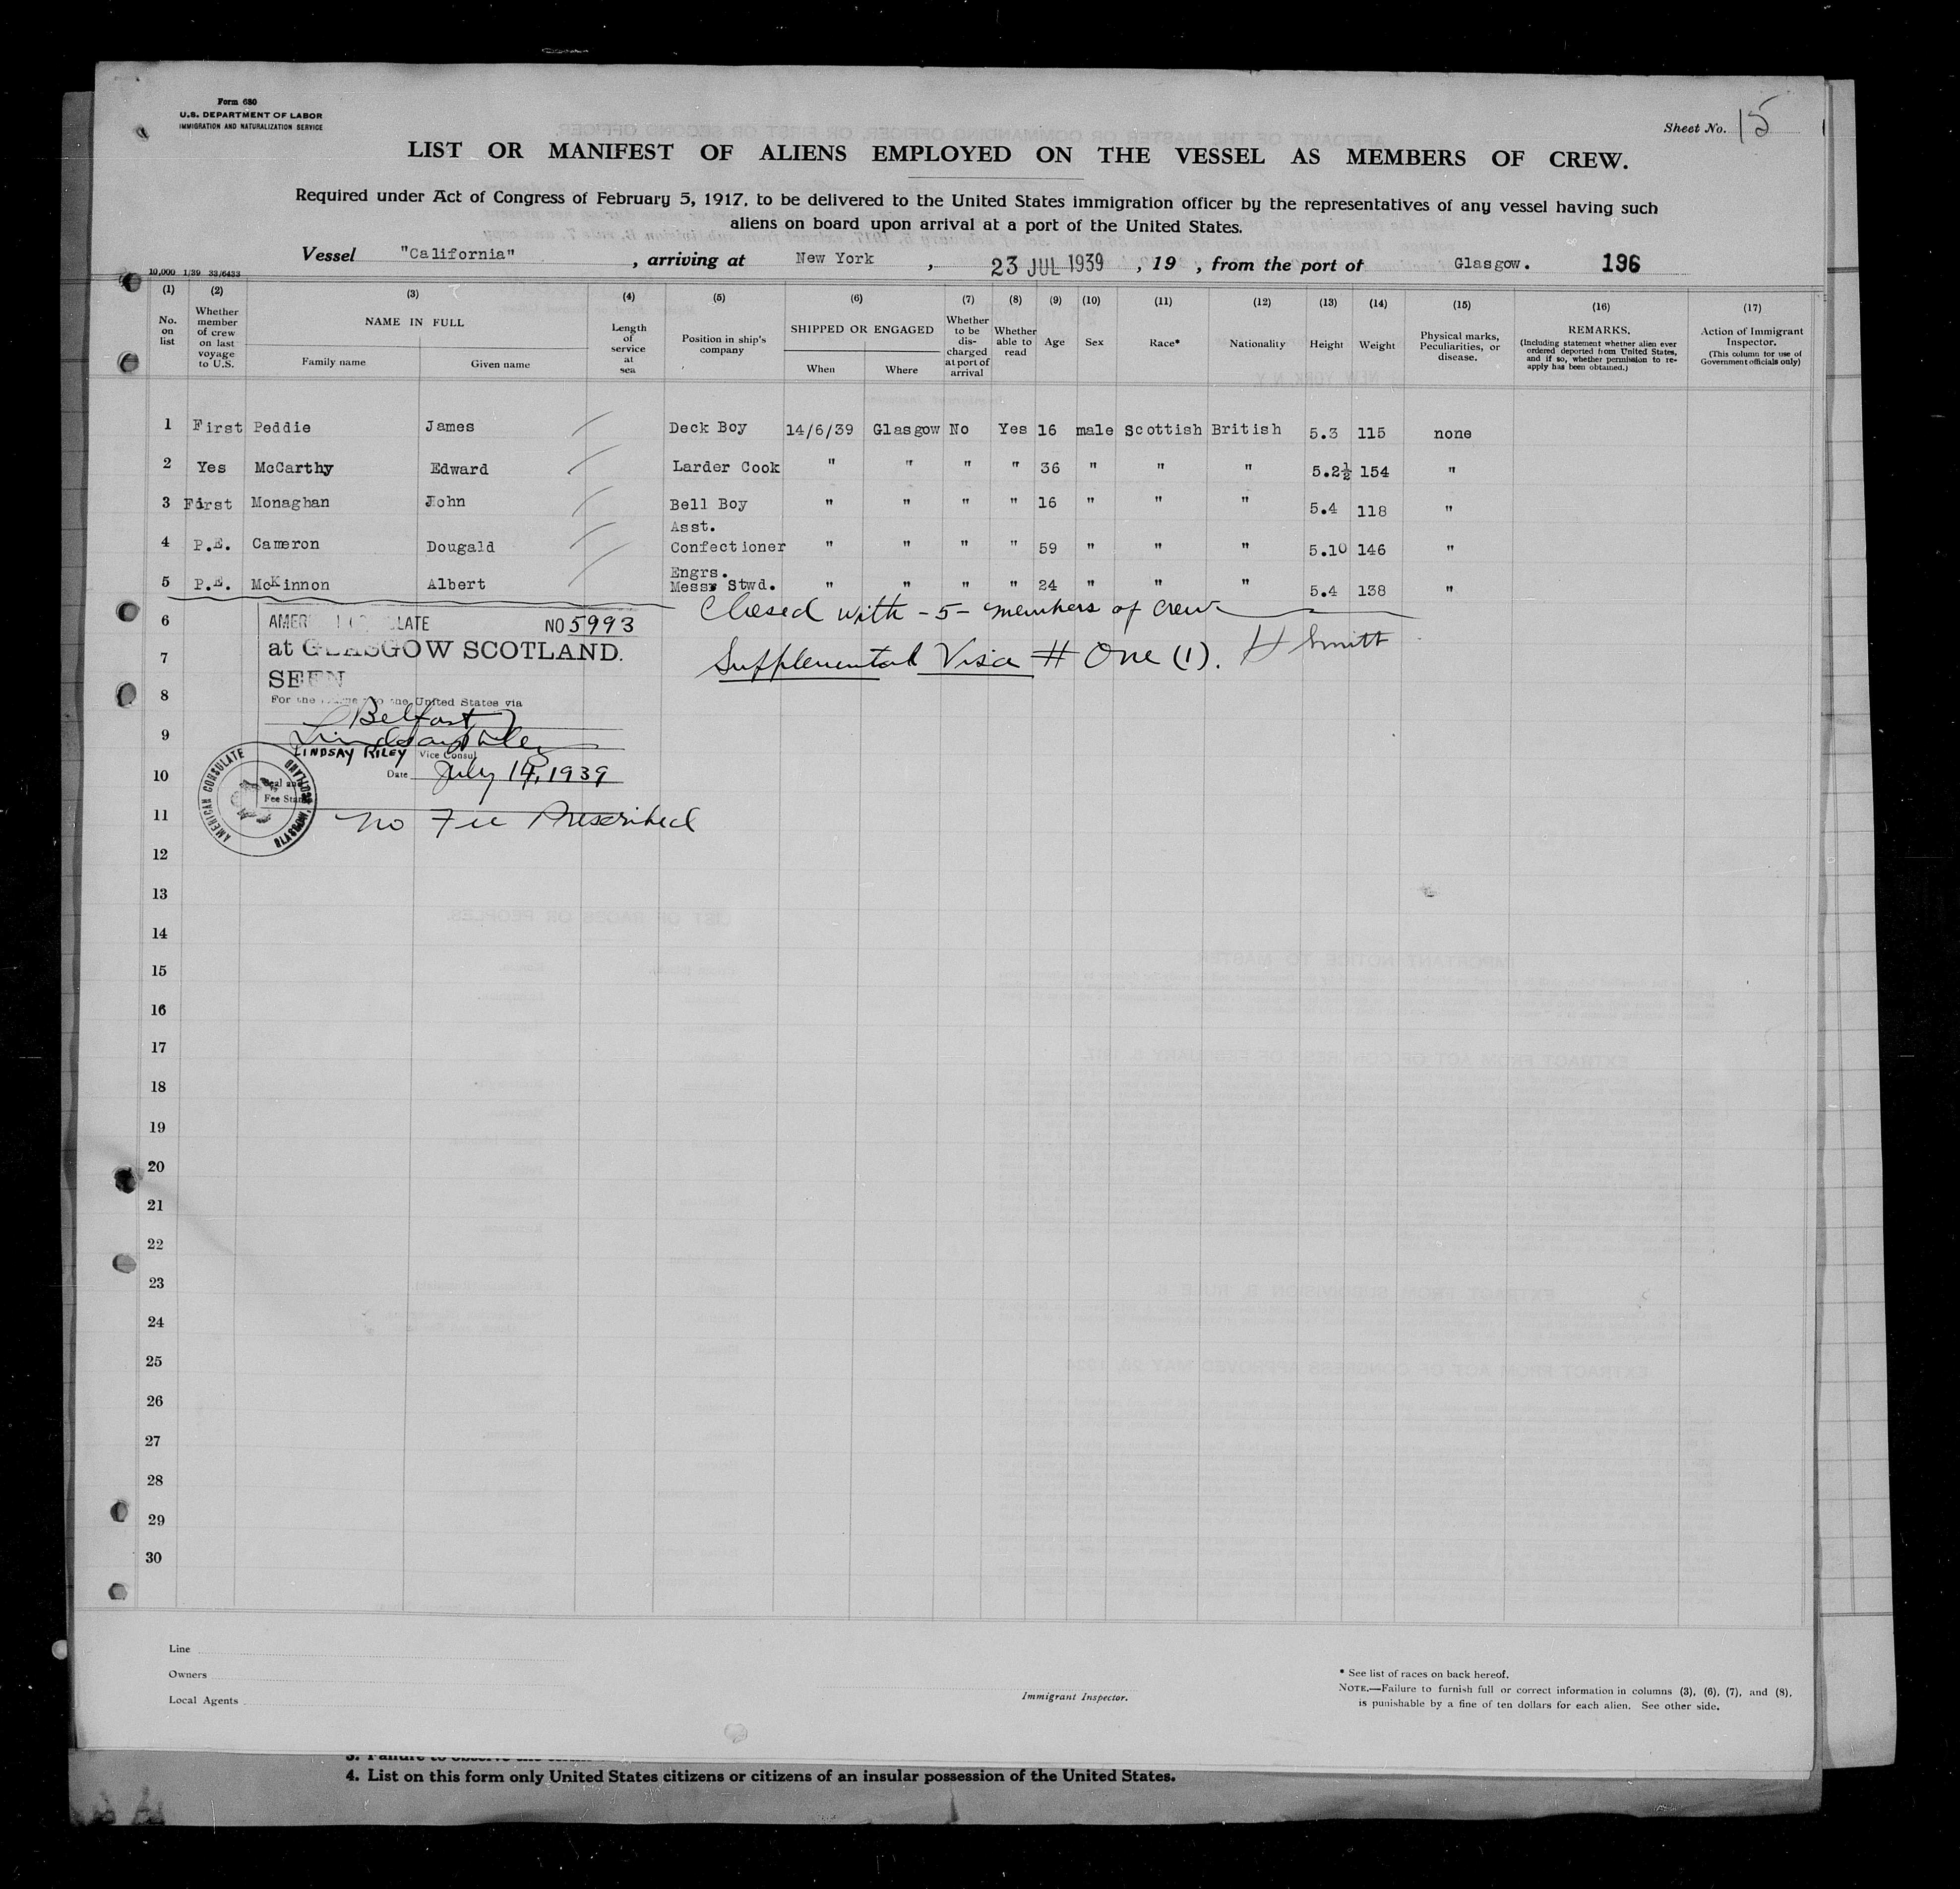 Form 680
U.S. DEPARTMENT OF LABOR
IMMIGRATION AND NATURALIZATION SERVICE
Sheet No. 15
LIST OR MANIFEST OF ALIENS EMPLOYED ON THE VESSEL AS MEMBERS OF CREW.
Required under Act of Congress of February 5, 1917, to be delivered to the United States immigration officer by the representatives of any vessel having such
aliens on board upon arrival at a port of the United States.
Vessel "California", arriving at New York, 23 JUL 1939, 19 , from the port of Glasgow. 196
10,000 1/39 33/6433
(1) (2) (3) (4) (5) (6) (7) (8) (9) (10) (11) (12) (13) (14) (15) (16) (17)
No. on list
Whether member of crew on last voyage to U.S.
NAME IN FULL
Family name Given name
Length of service at sea
Position in ship's company
SHIPPED OR ENGAGED
When Where
Whether to be discharged at port of arrival
Whether able to read
Age
Sex
Race*
Nationality
Height
Weight
Physical marks, Peculiarities, or disease.
REMARKS.
(Including statement whether alien ever ordered deported from United States, and if so, whether permission to reapply has been obtained.)
Action of Immigrant Inspector.
(This column for use of Government officials only)
1 First Peddie James Deck Boy 14/6/39 Glasgow No Yes 16 male Scottish British 5.3 115 none
2 Yes McCarthy Edward Larder Cook " " " " 36 " " " 5.2½ 154 "
3 First Monaghan John Bell Boy " " " " 16 " " " 5.4 118 "
4 P.E. Cameron Dougald Asst. Confectioner " " " " 59 " " " 5.10 146 "
5 P.E. McKinnon Albert Engrs. Mess Stwd. " " " " 24 " " " 5.4 138 "
Closed with -5- members of crew
Supplemental Visa # One (1). H Smith
6
7
8
9
10
11
12
13
14
15
16
17
18
19
20
21
22
23
24
25
26
27
28
29
30
NO 5993
at GLASGOW SCOTLAND.
SEEN
to the United States via
Belfast
LINDSAY RILEY Vice Consul
Date July 14, 1939
AMERICAN CONSULATE
GLASGOW, SCOTLAND
No Fee Prescribed
Line
Owners
Local Agents
Immigrant Inspector.
* See list of races on back hereof.
NOTE.—Failure to furnish full or correct information in columns (3), (6), (7), and (8),
is punishable by a fine of ten dollars for each alien. See other side.
4. List on this form only United States citizens or citizens of an insular possession of the United States.